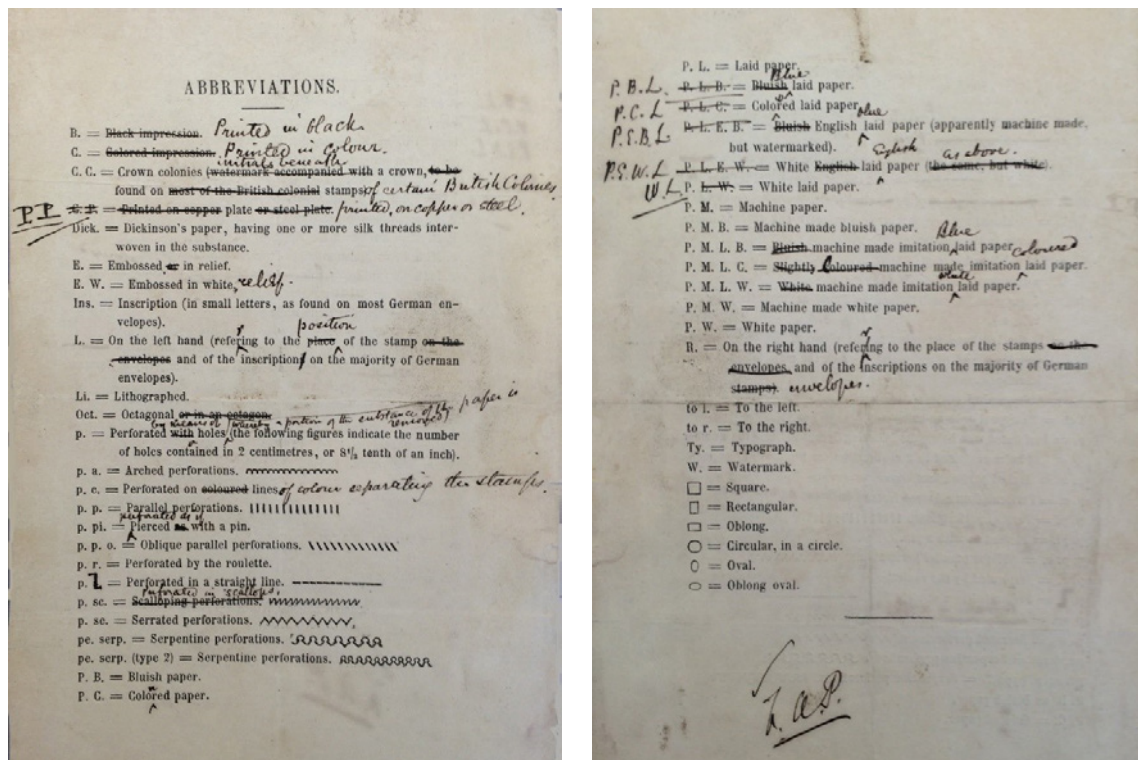 ABBREVIATIONS.
B. = Black impression. Printed in black.
C. = Colored impression. Printed in colour.
initials beneath
C. C. = Crown colonies (watermark accompanied with a crown, to be
found on most of the British colonial stamps of certain British Colonies
P.P C. P. = Printed on copper plate or steel plate. printed, on copper or steel.
Dick. = Dickinson's paper, having one or more silk threads inter-
woven in the substance.
E. = Embossed or in relief.
E. W. = Embossed in white, relief.
Ins. = Inscription (in small letters, as found on most German en-
velopes).
position
L. = On the left hand (refering to the place of the stamp on the
envelopes and of the inscription on the majority of German
envelopes).
Li. = Lithographed.
Oct. = Octagonal or in an octagon.
by means of whereby a portion of the substance of the paper is removed
p. = Perforated with holes (the following figures indicate the number
of holes contained in 2 centimetres, or 8¼ tenth of an inch).
p. a. = Arched perforations.
p. c. = Perforated on coloured lines of colour separating the stamps.
p. p. = Parallel perforations.
perforated as if
p. pi. = Pierced as with a pin.
p. p. o. = Oblique parallel perforations.
p. r. = Perforated by the roulette.
p. l = Perforated in a straight line.
Perforated in scallops.
p. sc. = Scalloping perforations.
p. se. = Serrated perforations.
pe. serp. = Serpentine perforations.
pe. serp. (type 2) = Serpentine perforations.
P. B. = Bluish paper.
P. C. = Colored paper.
P. L. = Laid paper.
Blue
P.B.L P. L. B. = Bluish laid paper.
P.C.L P. L. C. = Colored laid paper.
blue
P.E.B.L P. L. E. B. = Bluish English laid paper (apparently machine made,
but watermarked).
English as above.
P.E.W.L P. L. E. W. = White English laid paper (the same, but white).
W.L P. L. W. = White laid paper.
P. M. = Machine paper.
P. M. B. = Machine made bluish paper.
Blue
P. M. L. B. = Bluish machine made imitation laid paper.
coloured
P. M. L. C. = Slightly Coloured machine made imitation laid paper.
white
P. M. L. W. = White machine made imitation laid paper.
P. M. W. = Machine made white paper.
P. W. = White paper.
R. = On the right hand (refering to the place of the stamps on the
envelopes, and of the inscriptions on the majority of German
stamps). envelopes.
to l. = To the left.
to r. = To the right.
Ty. = Typograph.
W. = Watermark.
= Square.
= Rectangular.
= Oblong.
= Circular, in a circle.
= Oval.
= Oblong oval.